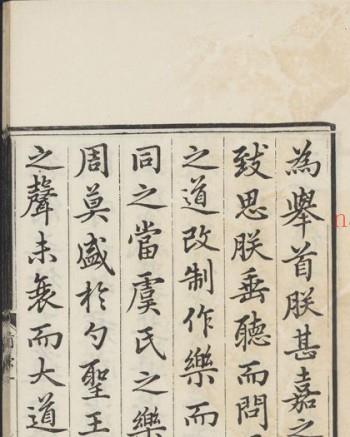 為舉首朕甚嘉之
致思朕垂聽而問
之道改制作樂而
同之當虞氏之樂
周莫盛於勺聖王
之聲未衰而大道